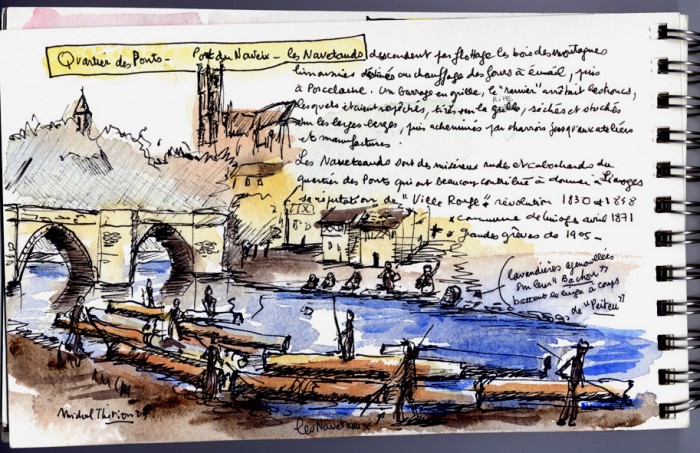 Quartier des Ponts - Port du Naveix - les Navetauds descendent par flottage les bois des montagnes
limousines destinés au chauffage des fours à émail, puis
à Porcelaine. Un barrage en grille, le "ramier" arrêtait les troncs,
lesquels étaient repêchés, tirés sur la grille, séchés et stockés
RIVE
sur les larges berges, puis acheminés par charrois jusqu'aux ateliers
et manufactures.
Les Navetauds sont des milieux rudes et cabochards du
quartier des Ponts qui ont beaucoup contribué à donner à Limoges
sa réputation de "Ville Rouge" révolution 1830 et 1848
x commune de Limoges avril 1871
x grandes grèves de 1905 -
lavandières agenouillées
dans leurs "Bachou"
battant le linge à coups
de "Peiteu"
Michel Thirion 09
les Navetaux